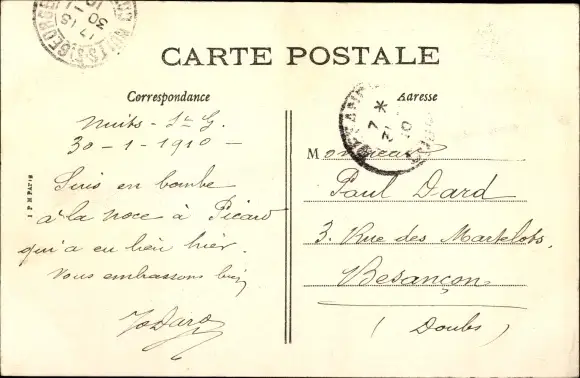 CARTE POSTALE
Correspondance
Adresse
Nuits - St G.
30 - 1 - 1910 -
Suis en bombe
à la noce à Picard
qui a eu lieu hier.
Vous embrassons bien
Monsieur
Paul Dard
3. Rue des Martelots,
Besançon
(Doubs)
NUITS-ST-GEORGES
17 15
30
BESANÇON
7 *
31
10